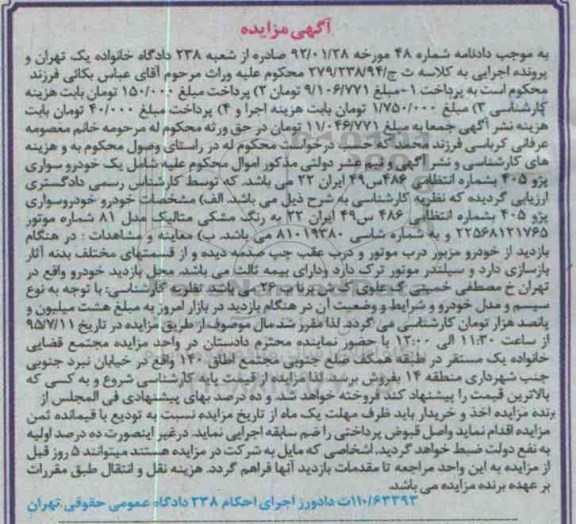 آگهی مزایده
به موجب دادنامه شماره ۴۸ مورخه ۹۲/۰۱/۲۸ صادره از شعبه ۲۳۸ دادگاه خانواده یک تهران و
پرونده اجرایی به کلاسه ت ج/۲۷۹/۲۳۸/۹۴ محکوم علیه وراث مرحوم آقای عباس بکائی فرزند
محکوم است به پرداخت ۱-مبلغ ۹/۱۰۶/۷۷۱ تومان ۲) پرداخت مبلغ ۱۵۰/۰۰۰ تومان بابت هزینه
کارشناسی ۳) مبلغ ۱/۷۵۰/۰۰۰ تومان بابت هزینه اجرا و ۴) پرداخت مبلغ ۴۰/۰۰۰ تومان بابت
هزینه نشر آگهی جمعا به مبلغ ۱۱/۰۴۶/۷۷۱ تومان در حق ورثه محکوم له مرحومه خانم معصومه
عرفانی کرباسی فرزند محمد که حسب درخواست محکوم له در راستای وصول محکوم به و هزینه
های کارشناسی و نشر آگهی و نیم عشر دولتی مذکور اموال محکوم علیه شامل یک خودرو سواری
پژو ۴۰۵ بشماره انتظامی ۴۸۶س۴۹ ایران ۲۲ می باشد. که توسط کارشناس رسمی دادگستری
ارزیابی گردیده که نظریه کارشناسی به شرح ذیل می باشد. الف) مشخصات خودرو خودروسواری
پژو ۴۰۵ بشماره انتظامی ۴۸۶ س۴۹ ایران ۲۲ به رنگ مشکی متالیک مدل ۸۱ شماره موتور
۲۲۵۶۸۱۲۱۷۶۵ و به شماره شاسی ۸۱۰۱۹۳۸۰ می باشد. ب) معاینه و مشاهدات : در هنگام
بازدید از خودرو مزبور درب موتور و درب عقب چپ صدمه دیده و از قسمتهای مختلف بدنه آثار
بازسازی دارد و سیلندر موتور ترک دارد ودارای بیمه ثالث می باشد. محل بازدید خودرو واقع در
تهران خ مصطفی خمینی ک علوی ک ش پ ۲۶ می باشد. نظریه کارشناسی: با توجه به نوع
سیسم و مدل خودرو و شرایط و وضعیت آن در هنگام بازدید در بازار امروز به مبلغ هشت میلیون و
پانصد هزار تومان کارشناسی می گردد. لذا مقرر شد مال موصوف از طریق مزایده در تاریخ ۹۵/۷/۱۱
از ساعت ۱۱:۳۰ الی ۱۲:۰۰ با حضور نماینده محترم دادستان در واحد مزایده مجتمع قضایی
خانواده یک مستقر در طبقه همکف ضلع جنوبی مجتمع اطاق ۱۴۰ واقع در خیابان نبرد جنوبی
جنب شهرداری منطقه ۱۴ بفروش برسد. لذا مزایده از قیمت پایه کارشناسی شروع و به کسی که
بالاترین قیمت را پیشنهاد کند فروخته خواهد شد. و ده درصد بهای پیشنهادی فی المجلس از
برنده مزایده اخذ و خریدار باید ظرف مهلت یک ماه از تاریخ مزایده نسبت به تودیع با قیمانده ثمن
مزایده اقدام نماید واصل قبوض پرداختی را ضم سابقه اجرایی نماید. درغیر اینصورت ده درصد اولیه
به نفع دولت ضبط خواهد گردید. اشخاصی که مایل به شرکت در مزایده هستند میتوانند ۵ روز قبل
از مزایده به این واحد مراجعه تا مقدمات بازدید آنها فراهم گردد. هزینه نقل و انتقال طبق مقررات
بر عهده برنده مزایده می باشد.
۱۱۰/۶۳۳۹۳ت دادورز اجرای احکام ۲۳۸ دادگاه عمومی حقوقی تهران